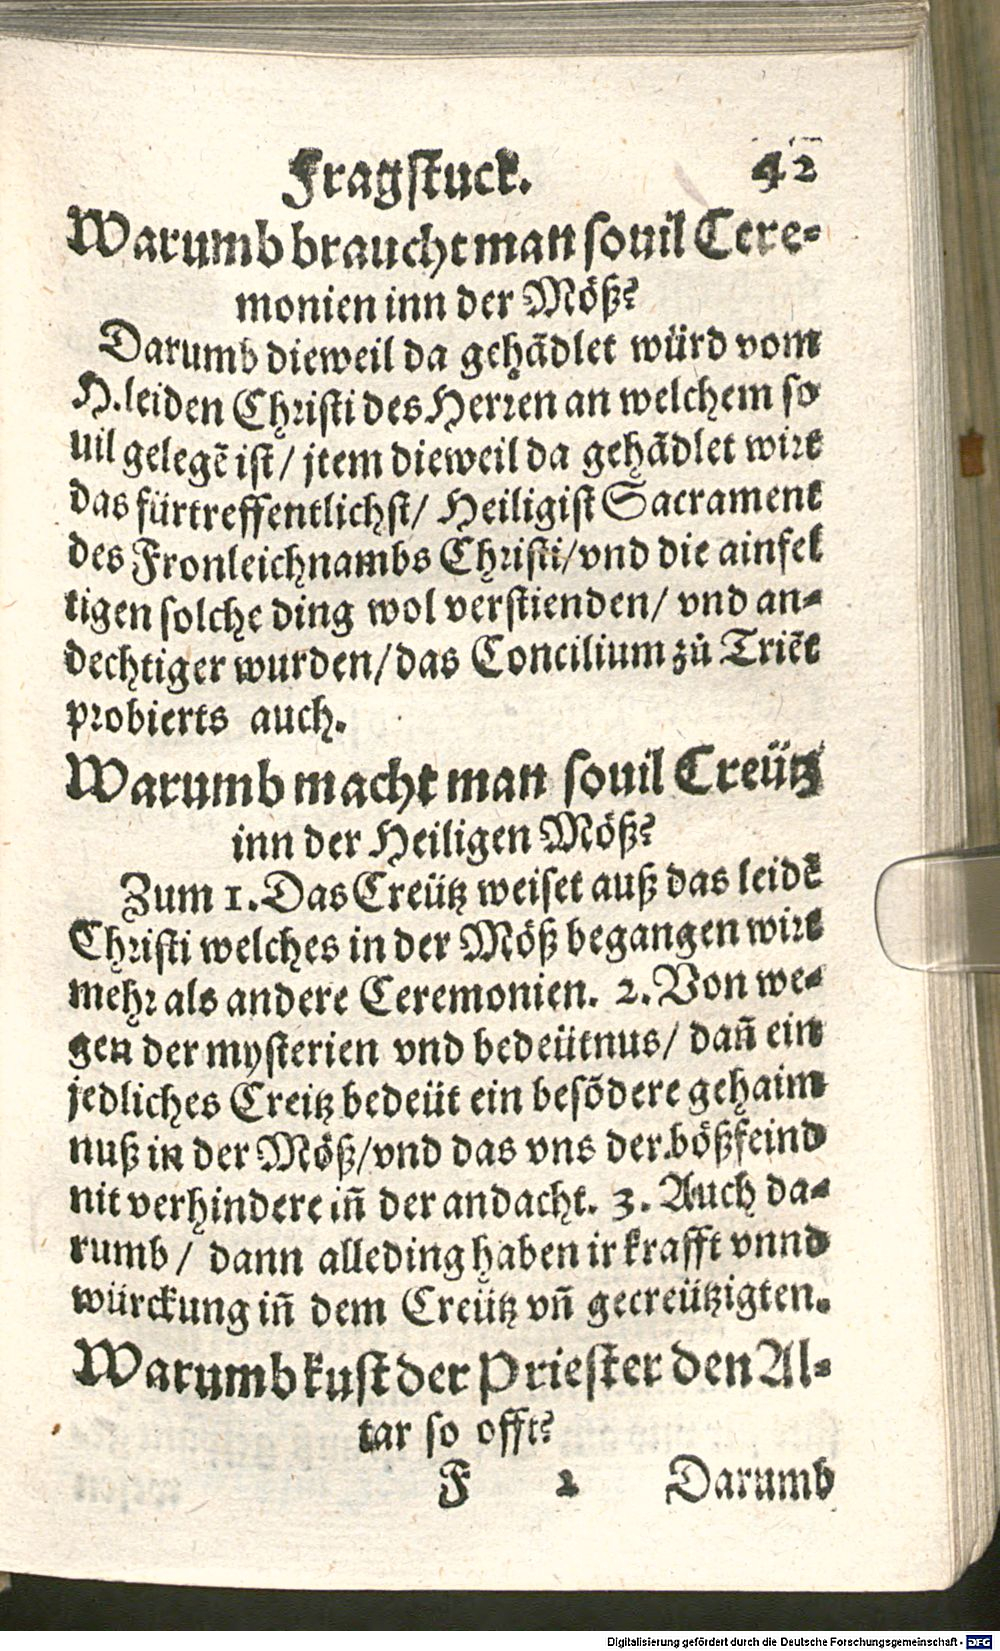 Fragſtuck. 42
Warumb braucht man ſouil Cere-
monien inn der Möß?
Darumb dieweil da gehãdlet würd vom
H. leiden Chriſti des Herren an welchem ſo
uil gelegẽ iſt / jtem dieweil da gehãdlet wirt
das fürtreffentlichſt / Heiligiſt Sacrament
des Fronleichnambs Chriſti / vnd die ainfel
tigen ſolche ding wol verſtienden / vnd an-
dechtiger wurden / das Concilium zů Triẽt
probierts auch.
Warumb macht man ſouil Creütz
inn der Heiligen Möß?
Zum 1. Das Creütz weiſet auß das leidẽ
Chriſti welches in der Möß begangen wirt
mehr als andere Ceremonien. 2. Von we-
gen der myſterien vnd bedeütnus / dañ ein
jedliches Creitz bedeüt ein beſõdere gehaim
nuß in der Möß / vnd das vns der bößfeind
nit verhindere iñ der andacht. 3. Auch da-
rumb / dann alleding haben ir krafft vnnd
würckung iñ dem Creütz vñ gecreützigten.
Warumb kuſt der Prieſter den Al-
tar ſo offt?
F 2 Darumb
Digitalisierung gefördert durch die Deutsche Forschungsgemeinschaft - DFG